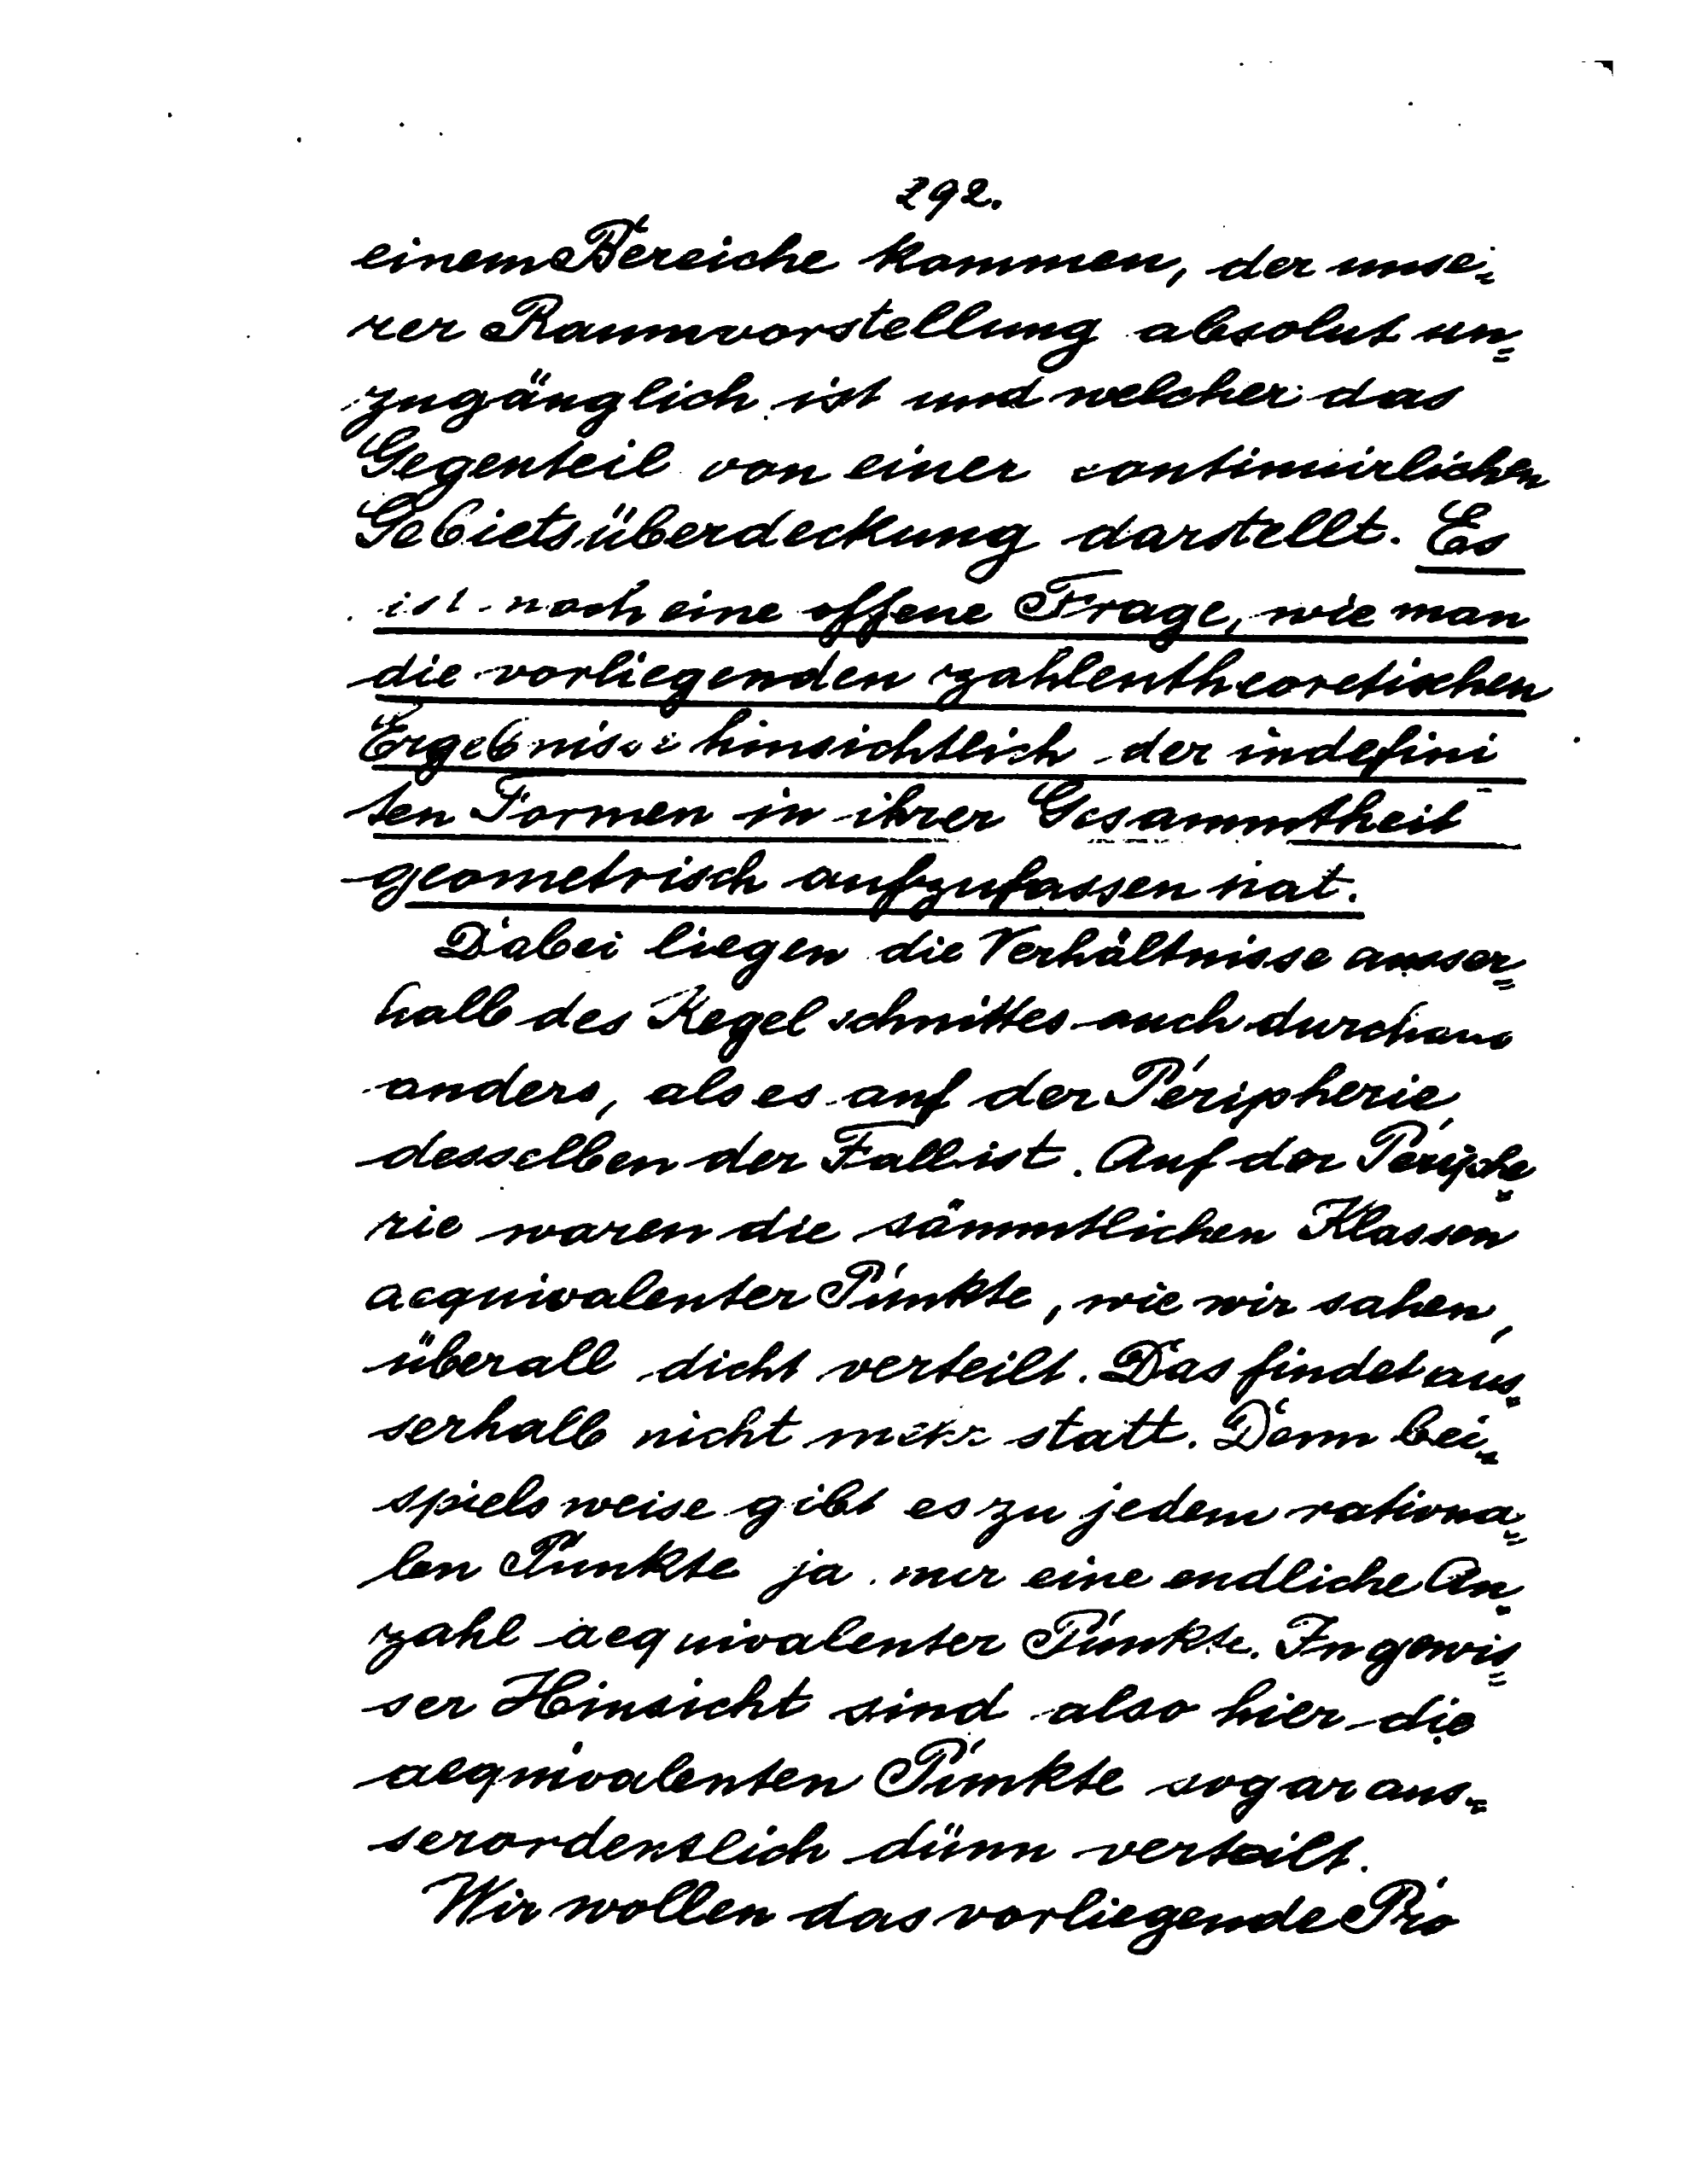 292.
einem Bereiche kommen, der unse=
rer Raumvorstellung absolut un=
zugänglich ist und welcher das
Gegenteil von einer continuirlichen
Gebietsüberdeckung darstellt. Es
ist noch eine offene Frage, wie man
die vorliegenden zahlentheoretischen
Ergebnisse hinsichtlich der indefini
ten Formen in ihrer Gesammtheit
geometrisch aufzufassen hat.
Dabei liegen die Verhältnisse ausser=
halb des Kegelschnittes auch durchaus
anders, als es auf der Peripherie
desselben der Fall ist. Auf der Periphe=
rie waren die sämmtlichen Klassen
aequivalenter Punkte, wie wir sahen,
überall dicht verteilt. Das findet aus=
serhalb nicht mehr statt. Denn bei=
spielsweise gibt es zu jedem rationa=
len Punkte ja nur eine endliche An=
zahl aequivalenter Punkte. In gewis=
ser Hinsicht sind also hier die
aequivalenten Punkte sogar aus=
serordentlich dünn verteilt.
Wir wollen das vorliegende Pro